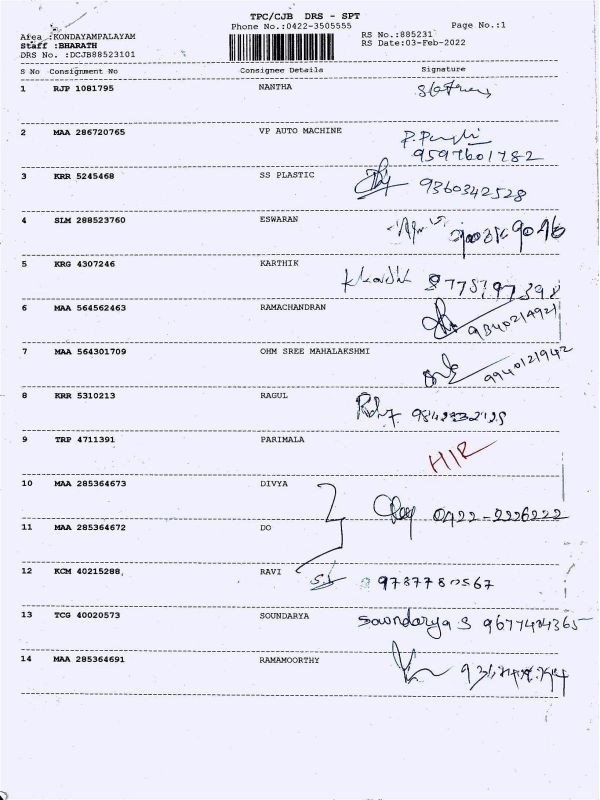 TPC/CJB DRS - SPT
Phone No.:0422-3505555 Page No.:1
Area :KONDAYAMPALAYAM RS No.:885231
Staff :BHARATH RS Date:03-Feb-2022
DRS No. :DCJB88523101
S No Consignment No Consignee Details Signature
1 RJP 1081795 NANTHA
2 MAA 286720765 VP AUTO MACHINE
9597601782
3 KRR 5245468 SS PLASTIC 9360342528
4 SLM 288523760 ESWARAN
5 KRG 4307246 KARTHIK
6 MAA 564562463 RAMACHANDRAN 9840214921
7 MAA 564301709 OHM SREE MAHALAKSHMI 9940121942
8 KRR 5310213 RAGUL
9 TRP 4711391 PARIMALA HIR
10 MAA 285364673 DIVYA 0422-2226222
11 MAA 285364672 DO
12 KCM 40215288, RAVI
13 TCG 40020573 SOUNDARYA Soundarya S 9677484365
14 MAA 285364691 RAMAMOORTHY